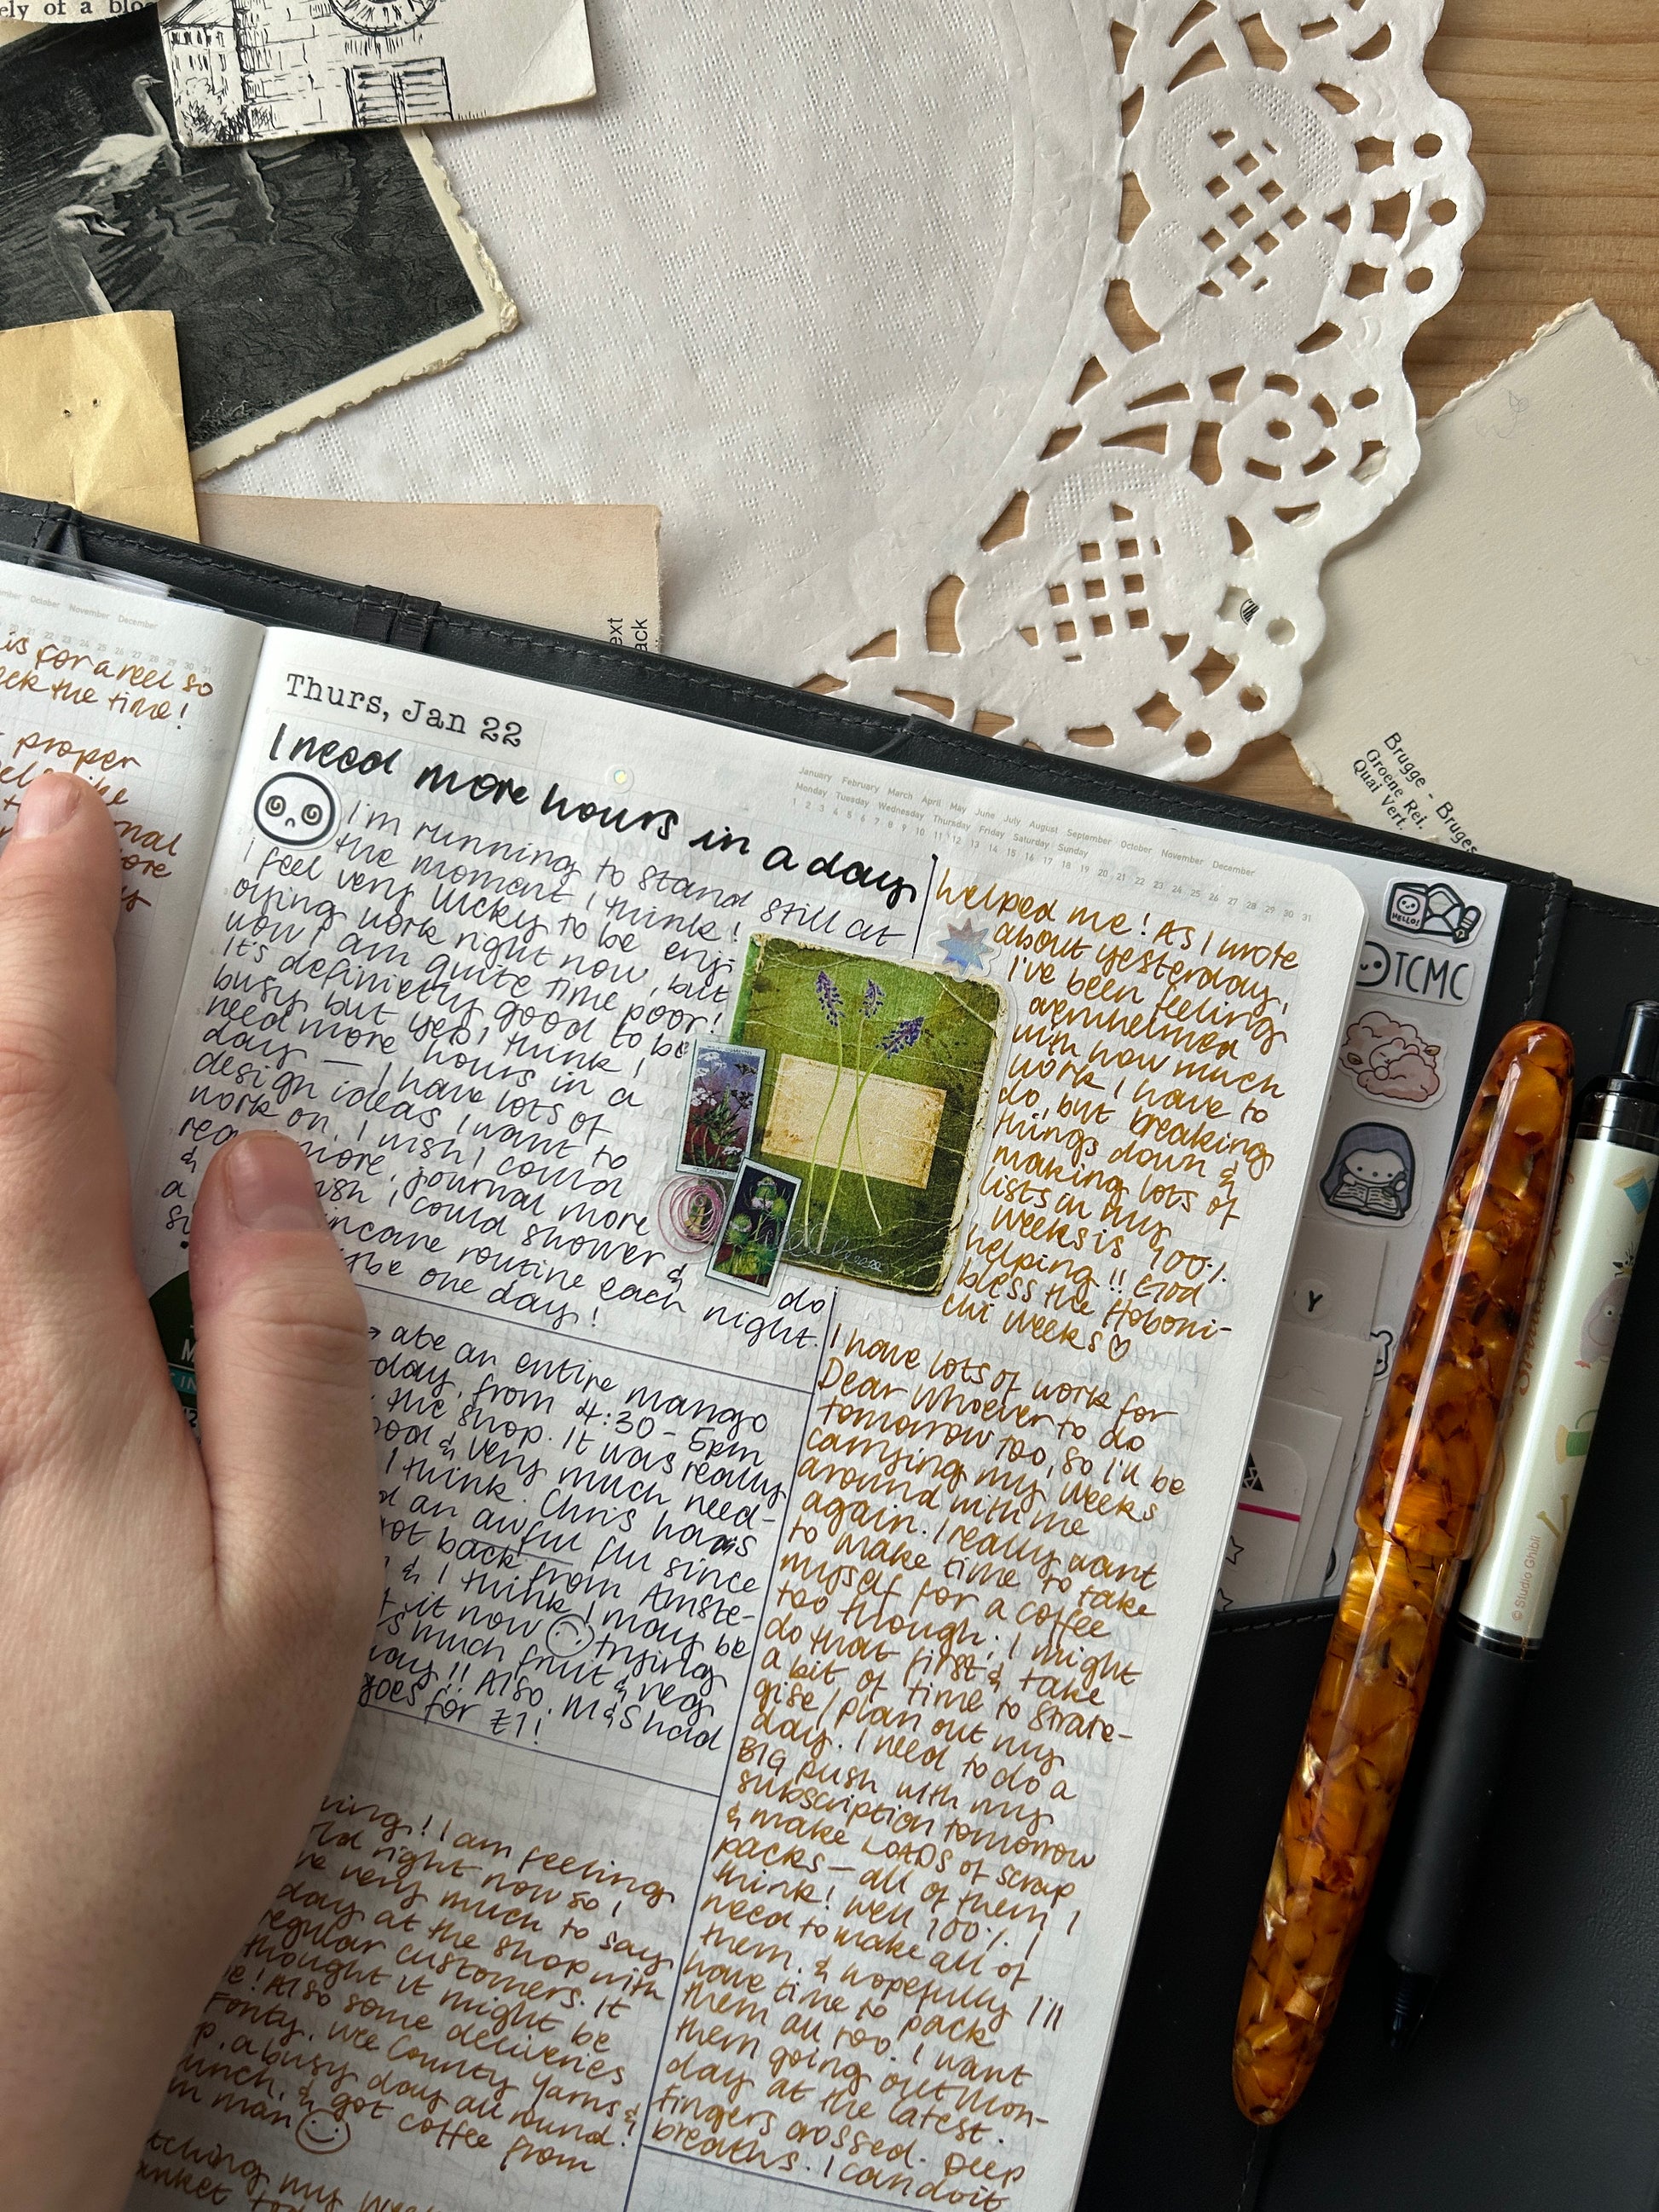 ely of a blo
ext
ack
Brugge - Bruges
Groene Rei.
Quai Vert.
October November December
is for a reel so
the time!
proper
Thurs, Jan 22
I need more hours in a day
January February March April May June July August September October November December
Monday Tuesday Wednesday Thursday Friday Saturday Sunday
1 2 3 4 5 6 7 8 9 10 11 12 13 14 15 16 17 18 19 20 21 22 23 24 25 26 27 28 29 30 31
I'm running to stand still at
the moment, I think!
I feel very lucky to be enj-
oying work right now, but
wow I am quite time poor!
It's definietly good to be
busy but yep, I think I
need more hours in a
day — I have lots of
design ideas I want to
work on, I wish I could
more, journal more
&
wish I could shower &
a
do
incare routine each night.
be one day!
→ ate an entire mango
day, from 4:30 - 5pm
the shop. It was really
ood & very much need-
I think. Chris has
an awful flu since
got back from Amste-
& I think I may be
it now trying
much fruit & veg
way!! Also, M&S had
goes for £1!
ning! I am feeling
right now so I
very much to say.
day at the shop with
regular customers. It
thought it might be
e! Also some deliveries
Fonty, Wee County Yarns &
p, a busy day all round!
unch, & got coffee from
man
my
helped me! As I wrote
about yesterday,
I've been feeling
overwhelmed
with how much
work I have to
do, but breaking
things down &
making lots of
lists in my
weeks is 100%
helping!! God
bless the Hoboni-
chi weeks ♡
I have lots of work for
Dear Whoever to do
tomorrow too, so I'll be
carrying my weeks
around with me
again. I really want
to make time to take
myself for a coffee
too though; I might
do that first & take
a bit of time to strate-
gise/plan out my
day. I need to do a
BIG push with my
subscription tomorrow
& make LOADS of scrap
packs — all of them I
think! Well 100% I
need to make all of
them, & hopefully I'll
have time to pack
them all too. I want
them going out Mon-
day at the latest.
Fingers crossed. Deep
breaths. I can do it
HELLO!
TCMC
Y
© Studio Ghibli